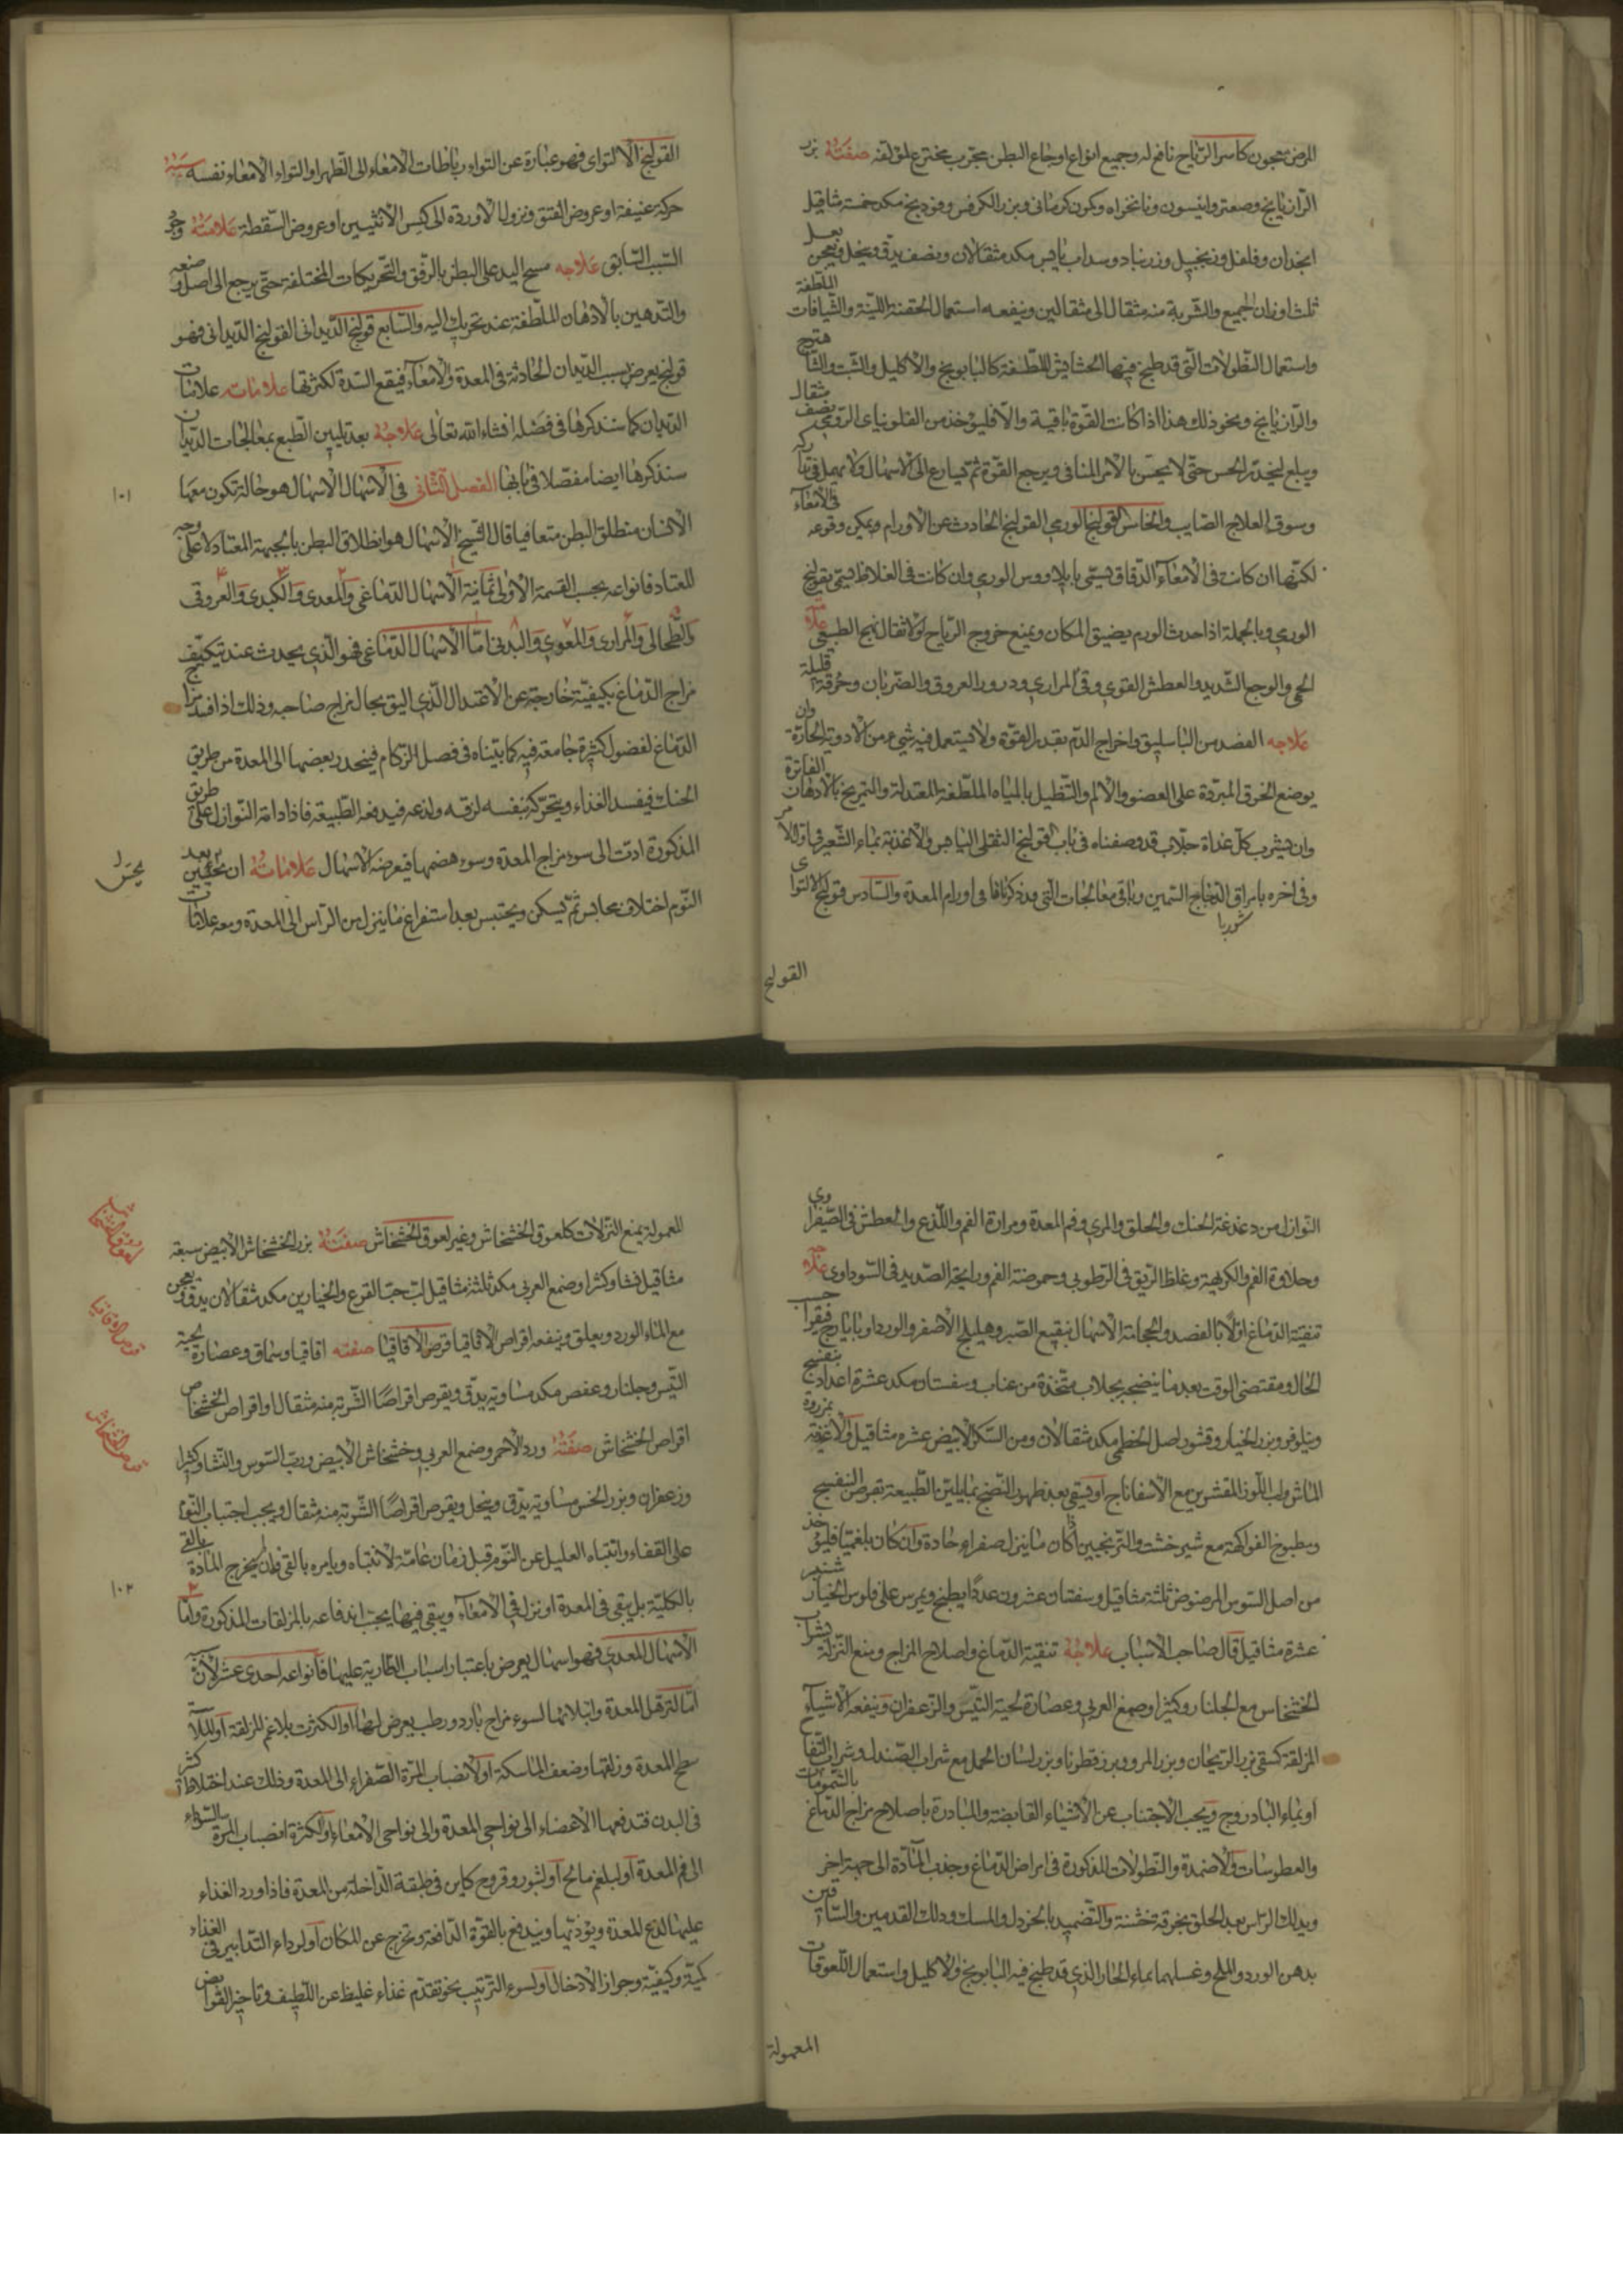 المرض معجون كاسر الرياح نافع له وجميع انواع اوجاع البطن مجرب مخترع لمؤلفه صفته بزر
الرازيانج وصعتر وانيسون ونانخواه وكمون كرماني وبزر الكرفس وفودنج مكد خمسة مثاقيل
انجدان وفلفل وزنجبيل وزرنباد وسداب يابس مكد مثقالان ونصف يدق وينخل ويعجن بعسل
ثلث اوزان الجميع والشربة منه مثقال الى مثقالين وينفعه استعمال الحقنة اللينة والشيافات الملطفة
واستعمال النطولات التي قد طبخ فيها الحشايش اللطيفة كالبابونج والاكليل والشبت والشاهترج
والرازيانج ونحو ذلك هذا اذا كانت القوة باقية والا فليؤخذ من الفلونياي الرومي نصف مثقال
ويبلع ليخدر الحس حتى لا يحس بالامر المنافي ويرجع القوة ثم يسارع الى الاسهال ولا يمهل في تداركه
وسوق العلاج الصايب والخامس قولنج الورمي القولنج الحادث عن الاورام ويمكن وقوعه في الامعاء
لكنها ان كانت في الامعاء الدقاق يسمى بايلاووس الورمي وان كانت في الغلاظ يسمى بقولنج
الورمي وبالجملة اذا حدث الورم يضيق المكان ويمنع خروج الرياح لا نقال نهج الطبيعي علامته
الحمى والوجع الشديد والعطش القوي وقئ المراري ودرور العروق والضربان وحرقة قليلة
علاجه الفصد من الباسليق واخراج الدم بقدر القوة ولا يستعمل فيه شيء من الادوية الحارة وان
يوضع الخرق المبردة على العضو والالم والتنطيل بالمياه الملطفة المعتدلة والتمريخ بالادهان الفاترة
وان يشرب كل غداة جلاب قد وصفناه في باب قولنج الثقلي اليابس والاغذية بماء الشعير في اول الامر
وفي اخره بامراق الدجاج السمين وباقي معالجات التي قد ذكرنا في اورام المعدة والسادس قولنج الالتواى
شوربا
القولنج
القولنج الالتواى فهو عبارة عن التواء رباطات الامعاء الى الظهر او التواء الامعاء نفسه سببه
حركة عنيفة او عروض الفتق ونزول الاوردة الى كيس الانثيين او عروض السقطة علامته وجود
السبب السابق علاجه مسح اليد على البطن بالرفق والتحريكات المختلفة حتى يرجع الى اصل وضعه
والتدهين بالادهان الملطفة عند تحريك اليه والسابع قولنج الديداني القولنج الديداني فهو
قولنج يعرض بسبب الديدان الحادثة في المعدة والامعاء فيقع السدة لكثرتها علاماته علامات
الديدان كما سنذكرها في فصله انشاء الله تعالى علاجه بعد تليين الطبع بمعالجات الديدان
سنذكرها ايضا مفصلا في بابها الفصل الثاني في الاسهال الاسهال هو حالة تكون معها
١٠١
الانسان منطلق البطن متعافيا قال الشيخ الاسهال هو انطلاق البطن بالجهة المعتادة لا على وجه
المعتاد فانواعه بحسب القسمة الاولى ثمانية الاسهال الدماغي والمعدي والكبدي والعروقي
والطحالي والمراري والمعوي والبدني اما الاسهال الدماغي فهو الذي يحدث عند تكيف
مزاج الدماغ بكيفية خارجة عن الاعتدال الذي اليق بحال مزاج صاحبه وذلك اذا فسد مزاج
الدماغ لفضول كثيرة جامعة فيه كما بيناه في فصل الزكام فينحدر بعضها الى المعدة من طريق
الحنك فيفسد الغذاء ويتحركه بنفسه لزقه ولذعه فيدفعه الطبيعة فاذا دامة النوازل على طريق
المذكورة ادت الى سوء مزاج المعدة وسوء هضمها فيعرض الاسهال علاماته ان بعد
النوم اختلاف مجالس ثم يسكن ويحتبس بعد استفراغ ما ينزل من الراس الى المعدة ومعه علامات
النوازل من دغدغة الحنك والحلق والمري وفم المعدة ومرارة الفم واللذع والعطش في الصفراوي
وحلاوة الفم والكريهة وغلظ الريق في الرطوبي وحموضة الفم ورايحة الصديد في السوداوي علاجه
تنقية الدماغ اولا بالفصد والحجامة الاسهال بنقيع الصبر وهليلج الاصفر والورد او بايارج فيقرا حسب
الحال ومقتضى الوقت بعد ما ينضجه بجلاب متخذة من عناب وسفستان مكد عشرة اعداد بنفسج
ونيلوفر وبزر الخيار وقشور اصل الخطمي مكد مثقالان ومن السكر الابيض عشره مثاقيل والاغذية بمزورة
الماش ولب اللوز المقشرين مع الاسفاناج او يسقي بعد ظهور النضج بما يلين الطبيعة بقرص البنفسج
ومطبوخ الفواكه مع شيرخشت والترنجبين اذا كان ما ينزل صفراء حادة وان كان بلغميا فليؤخذ
من اصل السوس المرضوض ثلثة مثاقيل وسفستان عشرون عددا يطبخ ويمرس على فلوس الخيار شنبر
عشرة مثاقيل قال صاحب الاسباب علاجه تنقية الدماغ واصلاح المزاج ومنع النزلة بشراب
الخشخاس مع الجلنار وكثيرا وصمغ العربي وعصارة لحية التيس والزعفران وينفعه الاشياء
المزلقة كسقي بزر الريحان وبزر المرو وبزر قطونا وبزر لسان الحمل مع شراب الصندل وشراب التفاح
او بماء البادروج ويجب الاجتناب عن الاشياء القابضة والمبادرة باصلاح مزاج الدماغ بالشمومات
والعطوسات والاضمدة والنطولات المذكورة في امراض الدماغ وجذب المادة الى جهة اخر
ويدلك الراس بعد الحلق بخرقة خشنة والتضميد بالخردل والمسك ودلك القدمين والساقين
بدهن الورد والملح وغسلهما بماء الحار الذي قد طبخ فيه البابونج والاكليل واستعمال اللعوقات
المعمولة
المعمولة يمنع النزلات كلعوق الخشخاش وغير لعوق الخشخاش صفته بزر الخشخاش الابيض سبعة
مثاقيل نشا وكثيرا وصمغ العربي مكد ثلثة مثاقيل لب حب القرع والخيارين مكد مثقالان يدق ويعجن
مع الماء الورد ويعلق وينفعه اقراص الاقاقيا قرص الاقاقيا صفته اقاقيا وسماق وعصارة لحية
قرص الاقاقيا
التيس وجلنار وعفص مكد مساوية يدق ويقرص اقراصا الشربة منه مثقال او اقراص الخشخاش
اقراص الخشخاش صفته ورد الاحمر وصمغ العربي وخشخاش الابيض ورب السوس والنشا وكثيرا
قرص الخشخاش
وزعفران وبزر الخس مساوية يدق وينخل ويقرص اقراصا الشربة منه مثقال ويجب اجتناب النوم
على القفاء وانتباه العليل عن النوم قبل زمان عامة الانتباه ويامره بالقئ فان يخرج المادة بالقئ
١٠٢
بالكلية بل يبقى في المعدة او نزل في الامعاء ويبقى فيها يجب اندفاعه بالمزلقات المذكورة واما
الاسهال المعدي فهو اسهال يعرض باعتبار اسباب الطارية عليها فانواعه احدى عشر لانه
اما لترهل المعدة وابتلائها لسوء مزاج بارد ورطب يعرض لها او لكثرت بلاغم المزلقة او لملاسة
سطح المعدة وزلقها وضعف الماسكة او لانصباب المرة الصفراء الى المعدة وذلك عند كثر اختلاطه
في البدن فتدفعها الاعضاء الى نواحي المعدة والى نواحي الامعاء او لكثرة انصباب المرة السوداء
الى فم المعدة او لبلغم مالح او لبثور وقروح كاين في طبقة الداخلة من المعدة فاذا ورد الغذاء
عليها لذع المعدة ويؤذيها ويندفع بالقوة الدافعة ويخرج عن المكان او لرداءة التدابير في الغذاء
كمية وكيفية وجواز الادخال او لسوء الترتيب نحو تقدم غذاء غليظ عن اللطيف وتاخير القوابض